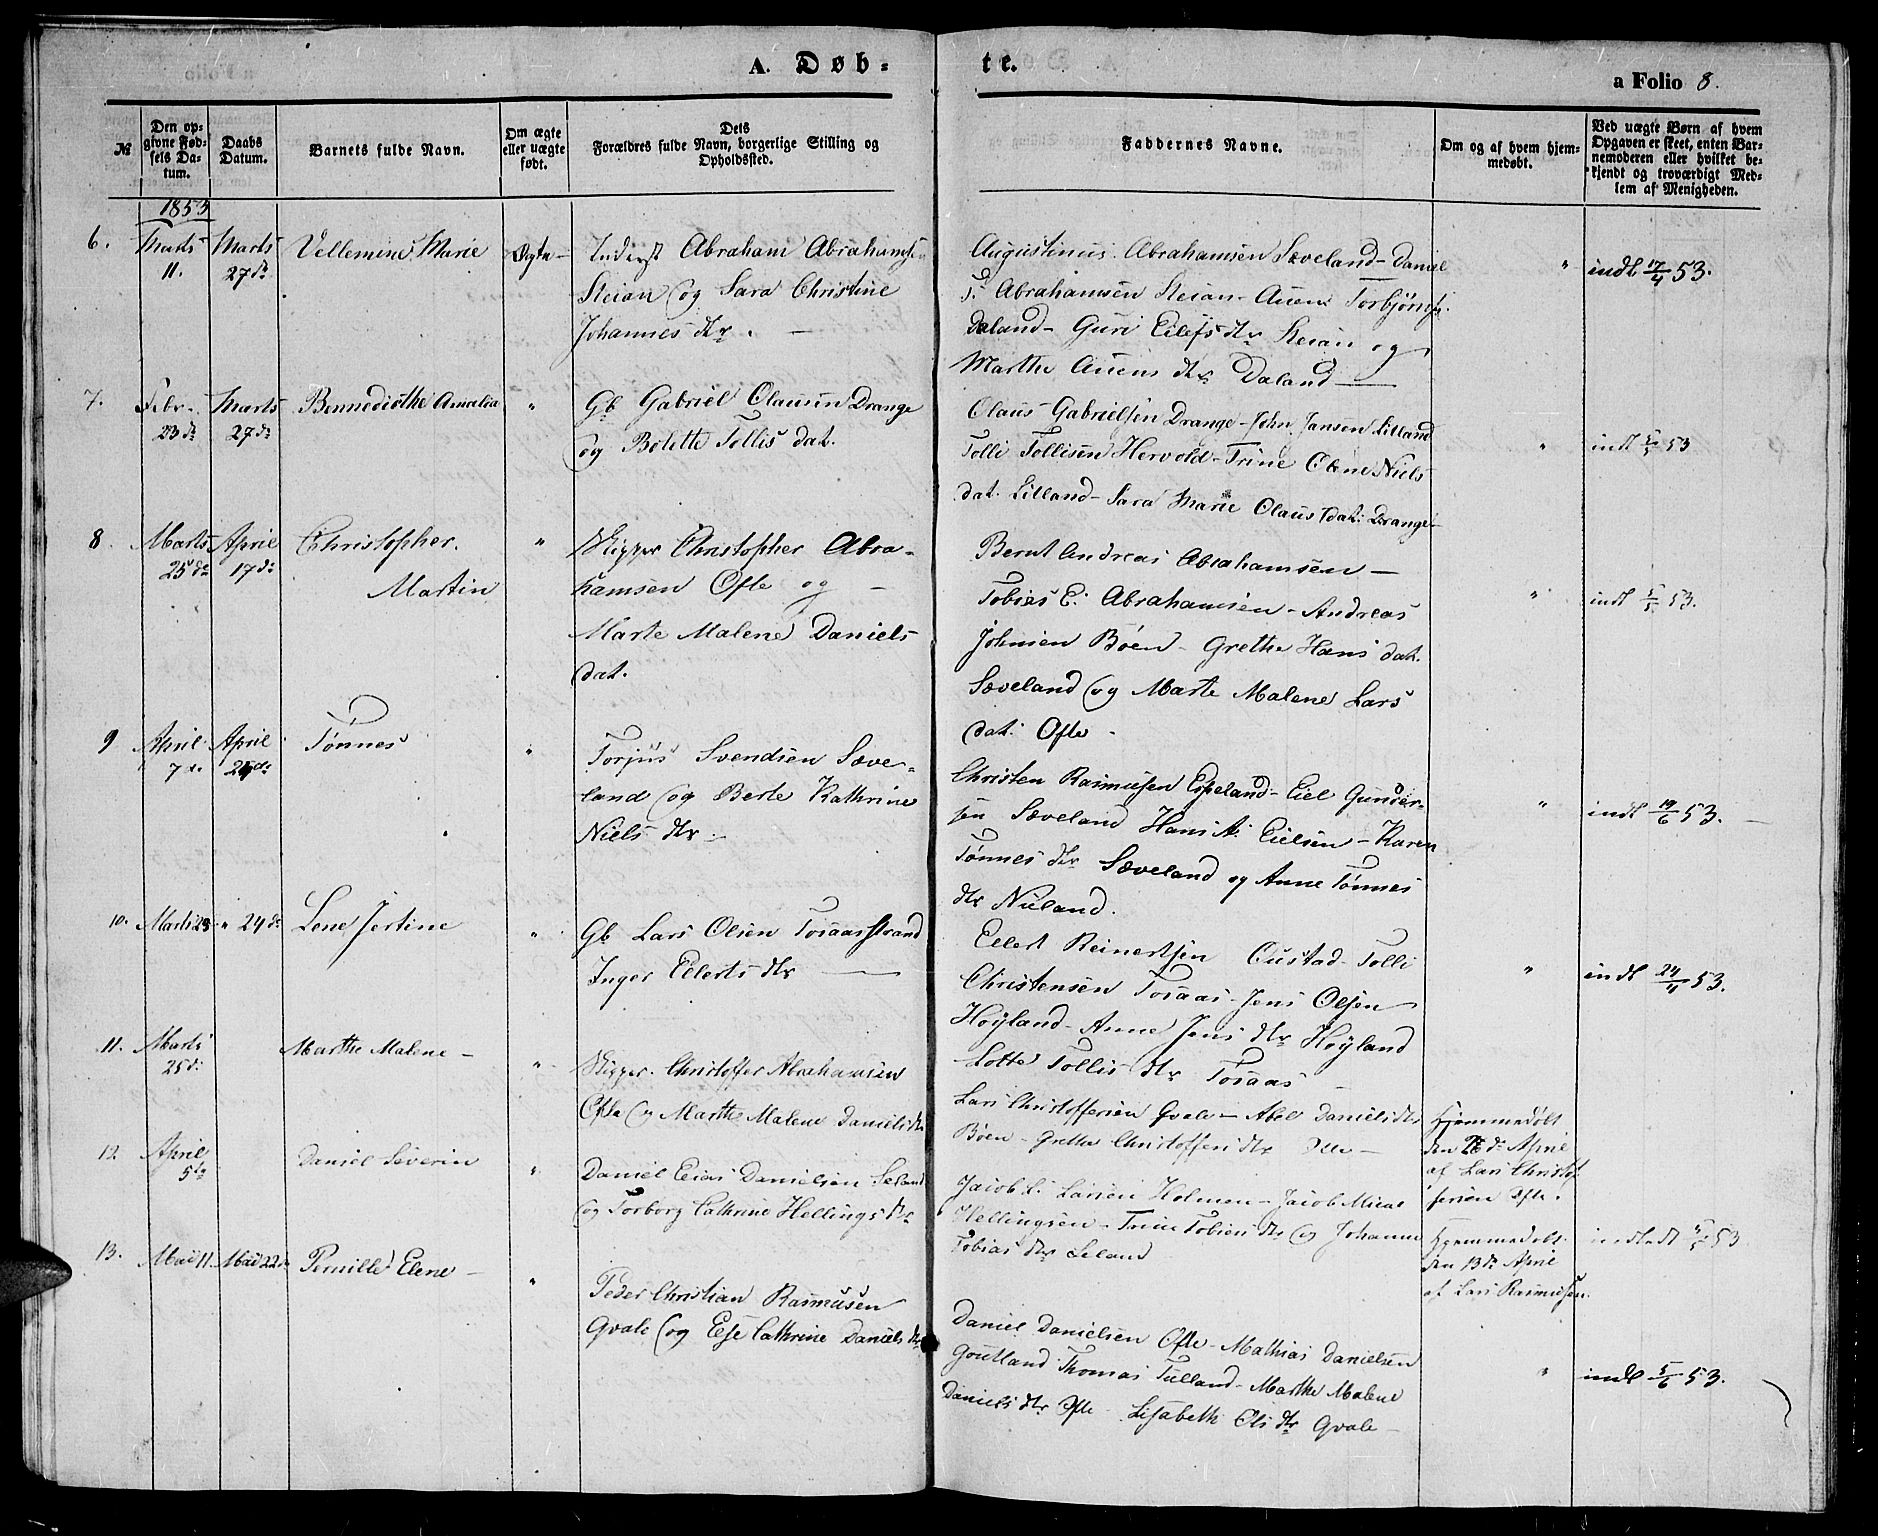 A. Døb-
te.
a Folio 8.
№
Den op-
givne Fød-
sels Da-
tum.
Daabs
Datum.
Barnets fulde Navn.
Om ægte
eller uægte
født.
Dets
Forældres fulde Navn, borgerlige Stilling og
Opholdssted.
Faddernes Navne.
Om og af hvem hjem-
medøbt.
Ved uægte Børn af hvem
Opgaven er skeet, enten Bar-
nemoderen eller hvilket be-
kjendt og troværdigt Med-
lem af Menigheden.
1853
6.
Marts
11.
Marts
27de
Vellemine Marie
Ægte
Inderst Abraham Abrahamsen
Steian og Sara Christine
Johannes dtr.
Augustinus Abrahamsen Sæveland - Daniel
Abrahamsen Steian - Auen Torbjørns.
Daland - Guri Eilefs dtr Steian og
Marthe Auens dtr Daland
indt 17/4 53.
7.
Febr.
23de
Marts
27de
Bennedicthe Amalia
"
Gb Gabriel Clausen Drange
og Bolette Tollis dat.
Claus Gabrielsen Drange - John Jansen Lilland
Tolli Tollisen Hervold - Trine Oline Niels
dat. Lilland - Sara Marie Claus dat: Drange
"
indt 5/5 53
8.
Marts
25de
April
17de
Christopher
Martin
"
Skipper Christopher Abra-
hamsen Ofte og
Marte Malene Daniels
dat.
Bernt Andreas Abrahamsen
Tobias E. Abrahamsen - Andreas
Johnsen Bøen - Grethe Hans dat.
Sæveland og Marte Malene Lars
dat: Ofte
"
indt 5/5 53.
9
April
7de
April
24de
Tønnes
"
Torjus Svendsen Sæve-
land og Berte Kathrine
Niels dtr
Christen Rasmusen Espeland - Eiel Gunder-
sen Sæveland Hans A. Eielsen - Karen
Tønnes dtr Sæveland og Anne Tønnes
dtr Nuland.
"
indt 19/6 53.
10.
Marts 23
" 24de
Lene Jertine
"
Gb Lars Olsen Tosaasstrand
Inger Eilerts dtr
Eilert Reinertsen Custad - Tolli
Christensen Tosaas - Jens Olsen
Høyland - Anne Jens dtr Høyland
Lotte Tollis dtr Tosaas
"
indt 24/4 53.
11.
Marts
25de
Marthe Malene
"
Skipper Christoffer Abrahamsen
Ofte og Marthe Malene Daniels dtr
Lars Christoffersen Qvale - Abel Daniels dtr
Bøen - Grethe Christoffers dtr Ofte
Hjemmedøbt
den 26de April
af Lars Christof-
fersen Ofte.
12.
April
5te
Daniel Severin
"
Daniel Elias Danielsen Seland
og Torborg Cathrine Hellings dtr
Jacob L. Larsen Holmen - Jacob Mias
Hellingsen - Trine Tobias dtr og Johanne
Tobias dtr Leland
Hjemmedøbt
den 13de April
af Lars Rasmussen.
indledt 5/5 53
13.
Mai 11.
Mai 22de
Pernille Elene
"
Peder Christian Rasmusen
Qvale og Else Cathrine Daniels dtr
Daniel Danielsen Ofte - Mathias Danielsen
Goutland Thomas Tulland - Marthe Malene
Daniels dtr Ofte - Lisabeth Ols dtr Qvale
"
indt 5/6 53.